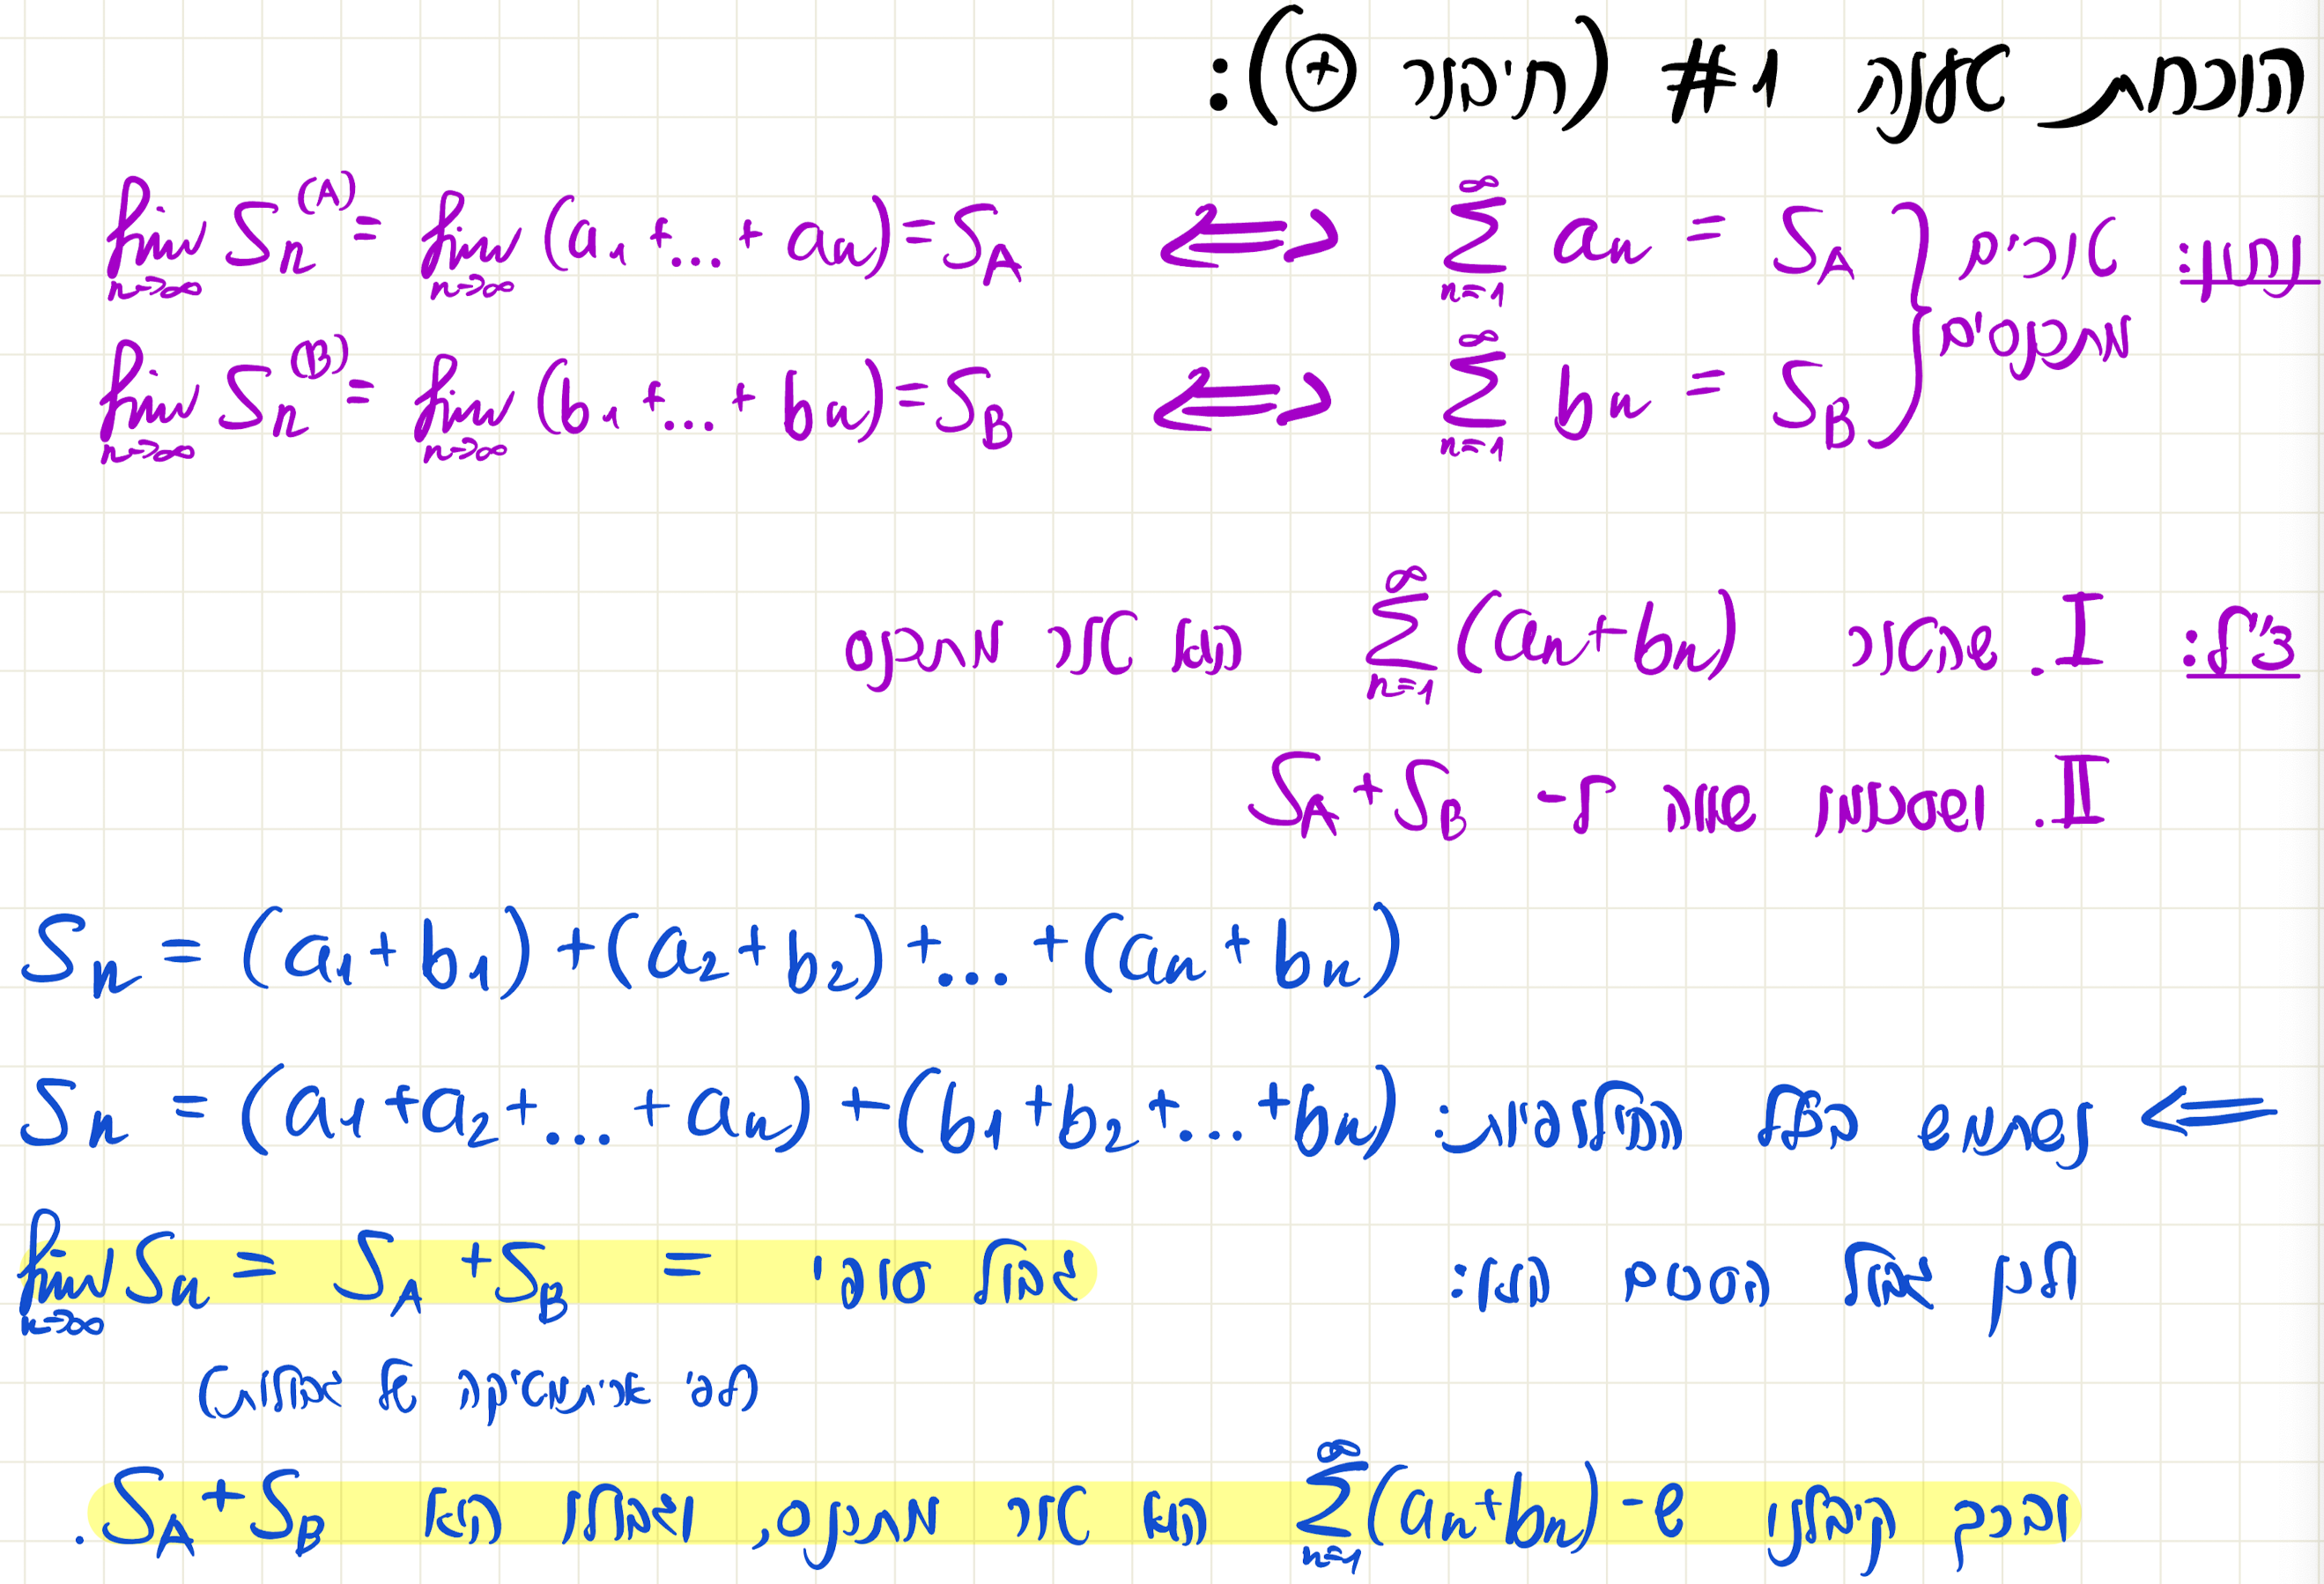 הוכחת טענה #1 (חיבור ⊕):
נתון: טורים מתכנסים { ∑_{n=1}^{∞} a_n = S_A ⟺ lim_{n→∞} S_n^{(A)} = lim_{n→∞} (a_1 + ... + a_n) = S_A
∑_{n=1}^{∞} b_n = S_B ⟺ lim_{n→∞} S_n^{(B)} = lim_{n→∞} (b_1 + ... + b_n) = S_B
צ״ל: I. שהטור ∑_{n=1}^{∞} (a_n + b_n) הוא טור מתכנס
II. ושסכומו שווה ל- S_A + S_B
S_n = (a_1 + b_1) + (a_2 + b_2) + ... + (a_n + b_n)
⇐ נשתמש בכלל החילופיות: S_n = (a_1 + a_2 + ... + a_n) + (b_1 + b_2 + ... + b_n)
ולכן הסכום הוא: lim_{n→∞} S_n = S_A + S_B = סופי
(לפי אריתמטיקה של גבולות)
ובכך קיבלנו ש- ∑_{n=1}^{∞} (a_n + b_n) הוא טור מתכנס, וגבולו הוא S_A + S_B.